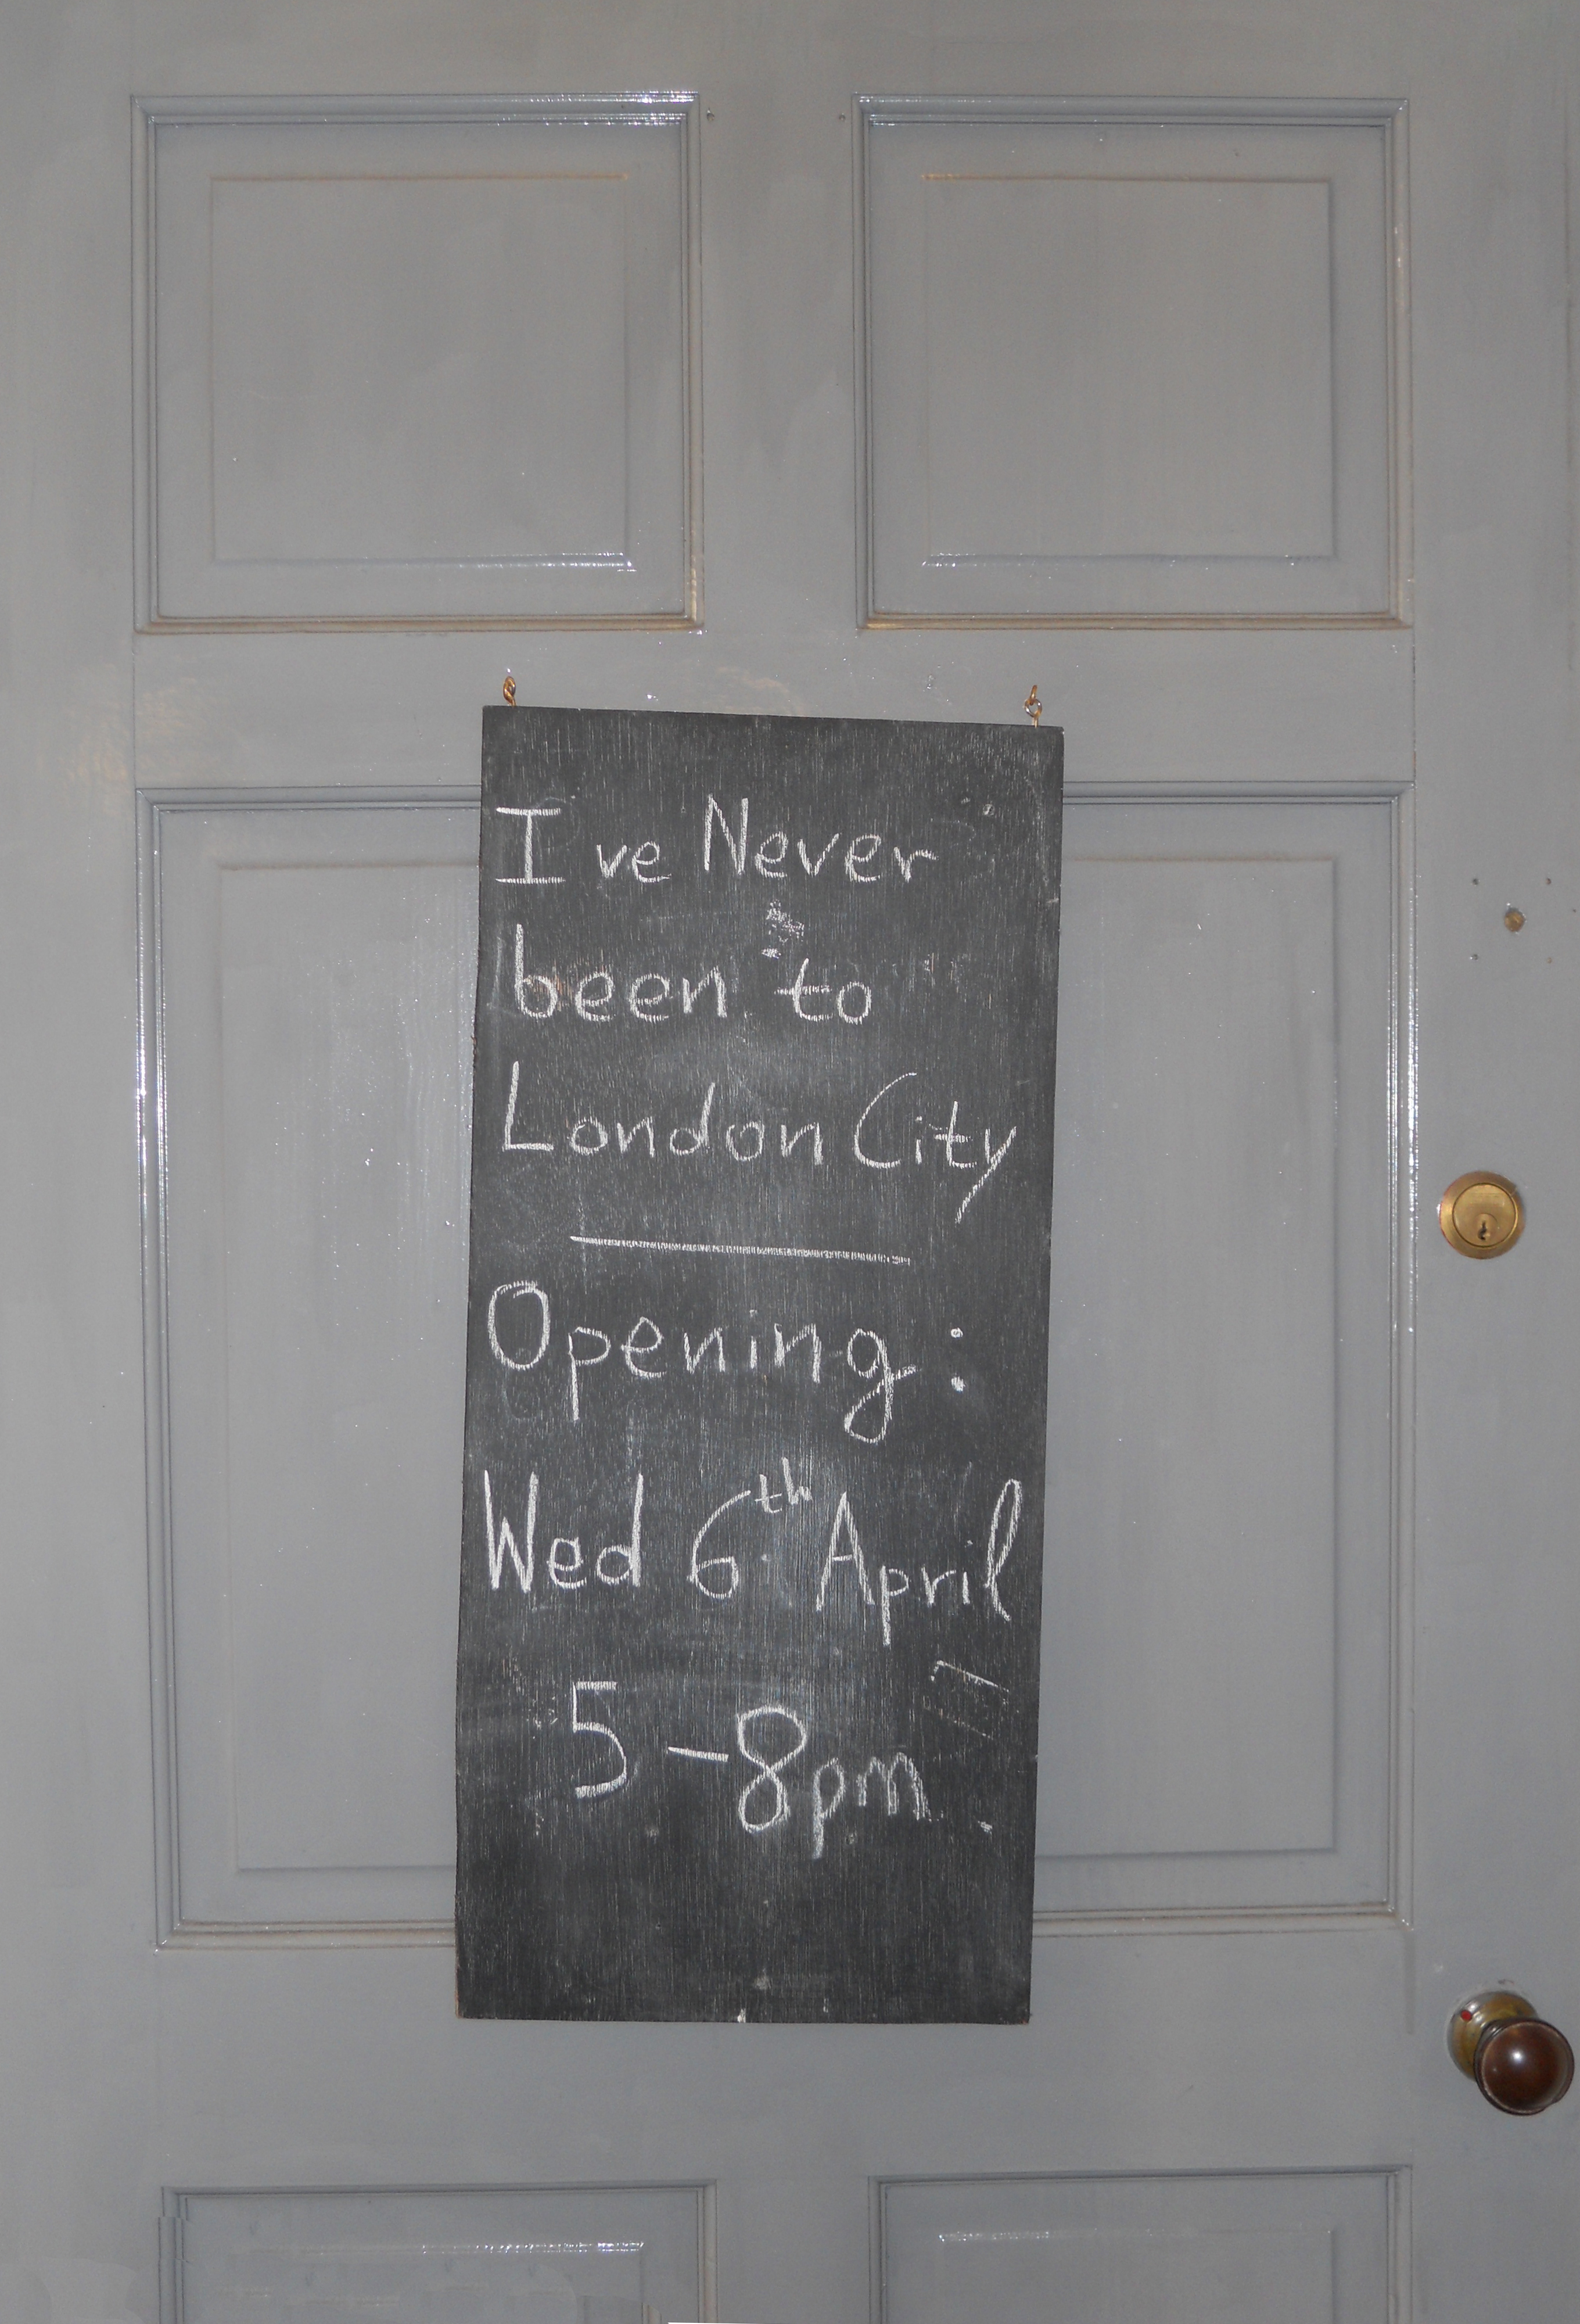 I ve Never
been to
London City
Opening:
Wed 6th April
5-8pm